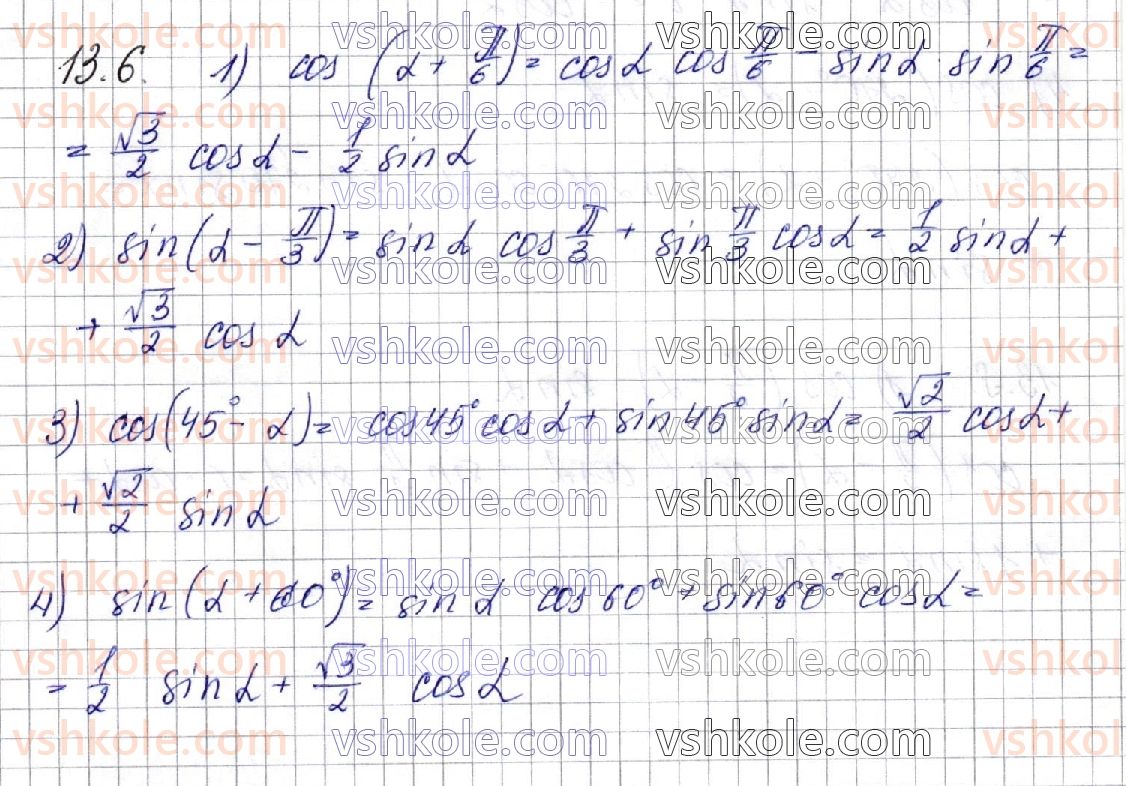 13.6. 1) cos(α + π/6) = cosα cos π/6 - sinα · sin π/6 =
= √3/2 cosα - 1/2 sinα
2) sin(α - π/3) = sinα cos π/3 + sin π/3 cosα = 1/2 sinα +
+ √3/2 cosα
3) cos(45° - α) = cos45° cosα + sin45° sinα = √2/2 cosα +
+ √2/2 sinα
4) sin(α + 60°) = sinα cos60° + sin60° cosα =
= 1/2 sinα + √3/2 cosα